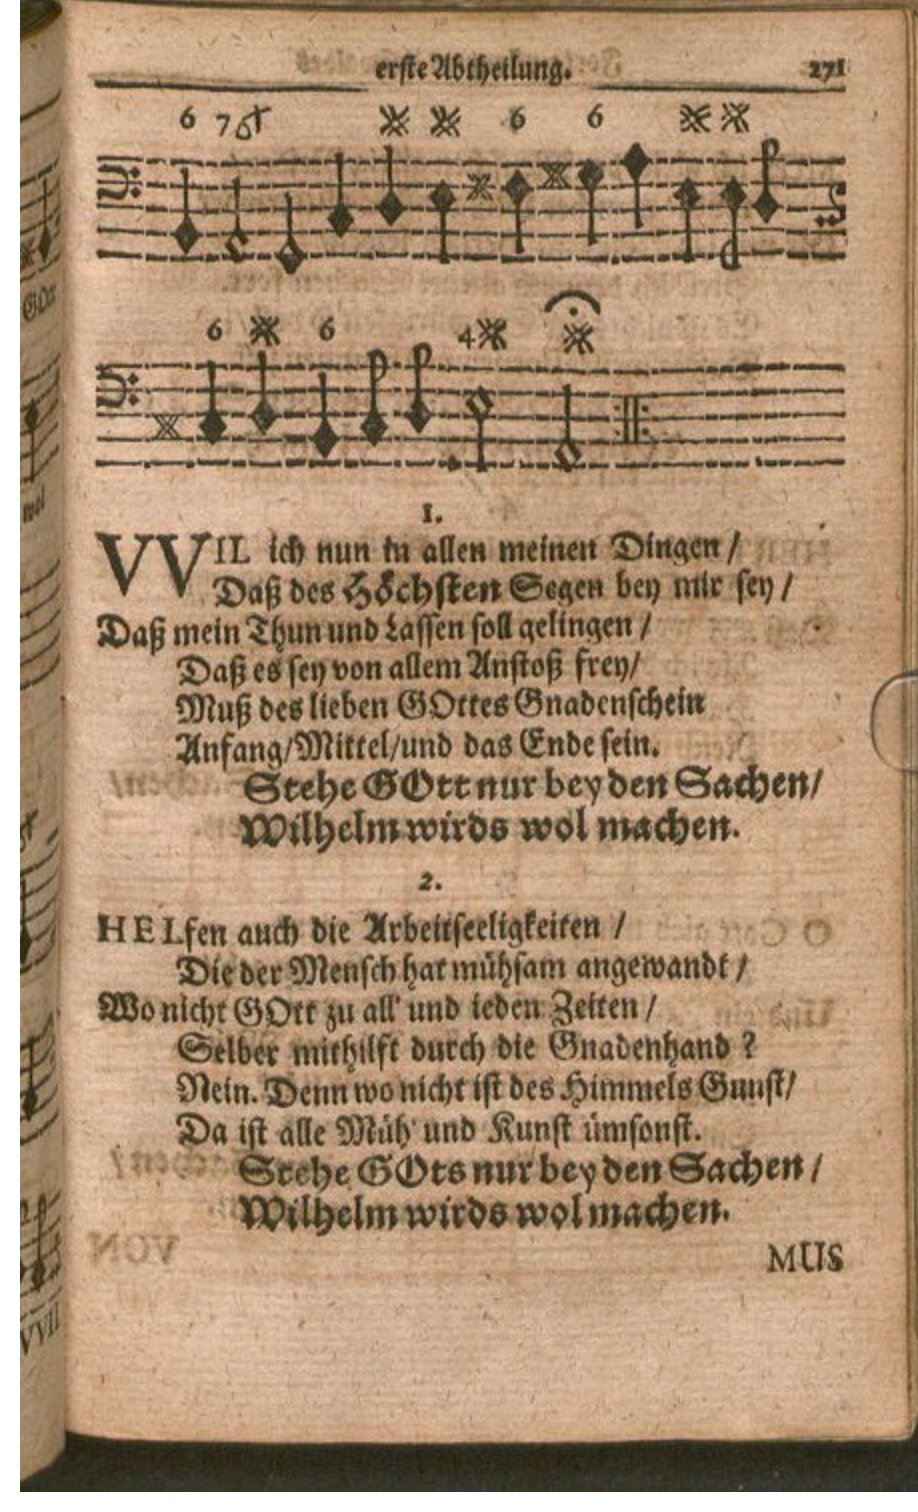 erste Abtheilung. 271
6 7 6 6 6
6 6 4
1.
WIL ich nun in allen meinen Dingen /
Daß des Höchsten Segen bey mir sey /
Daß mein Thun und Lassen soll gelingen /
Daß es sey von allem Anstoß frey/
Muß des lieben GOttes Gnadenschein
Anfang/Mittel/und das Ende sein.
Stehe GOtt nur bey den Sachen/
Wilhelm wirds wol machen.
2.
HELfen auch die Arbeitseeligkeiten /
Die der Mensch hat mühsam angewandt /
Wo nicht GOtt zu all' und ieden Zeiten /
Selber mithilft durch die Gnadenhand ?
Nein. Denn wo nicht ist des Himmels Gunst/
Da ist alle Müh' und Kunst ümsonst.
Stehe GOts nur bey den Sachen /
Wilhelm wirds wol machen.
MUS